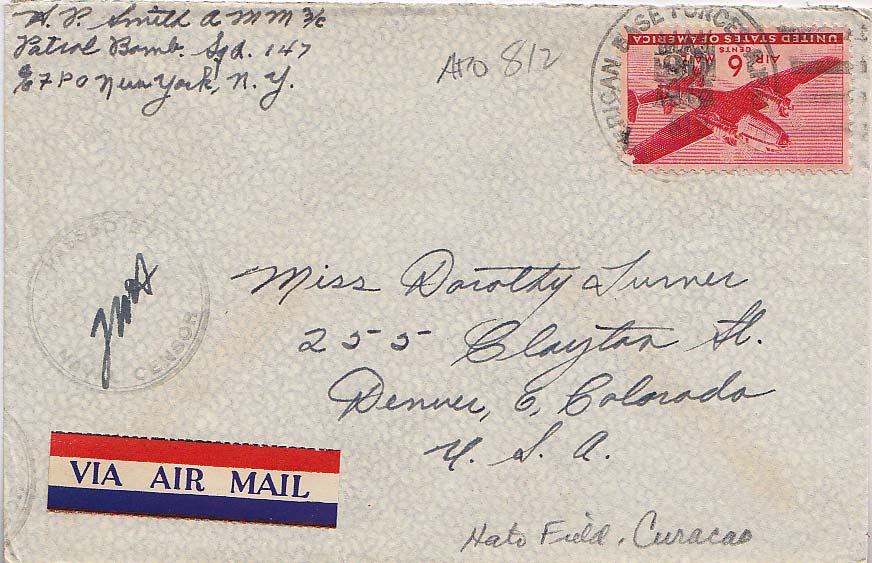 H. P. Smith A M M 3/c
Patrol Bomb. Sqd. 147
℅ F P O New York, N. Y.
APO 812
ERICAN BASE FORCES A.P.O.
UNITED STATES OF AMERICA
6 CENTS
AIR MAIL
PASSED BY
NAVAL CENSOR
Miss Dorothy Turner
255 Clayton St.
Denver, 6, Colorado
U. S. A.
VIA AIR MAIL
Hato Field. Curacao